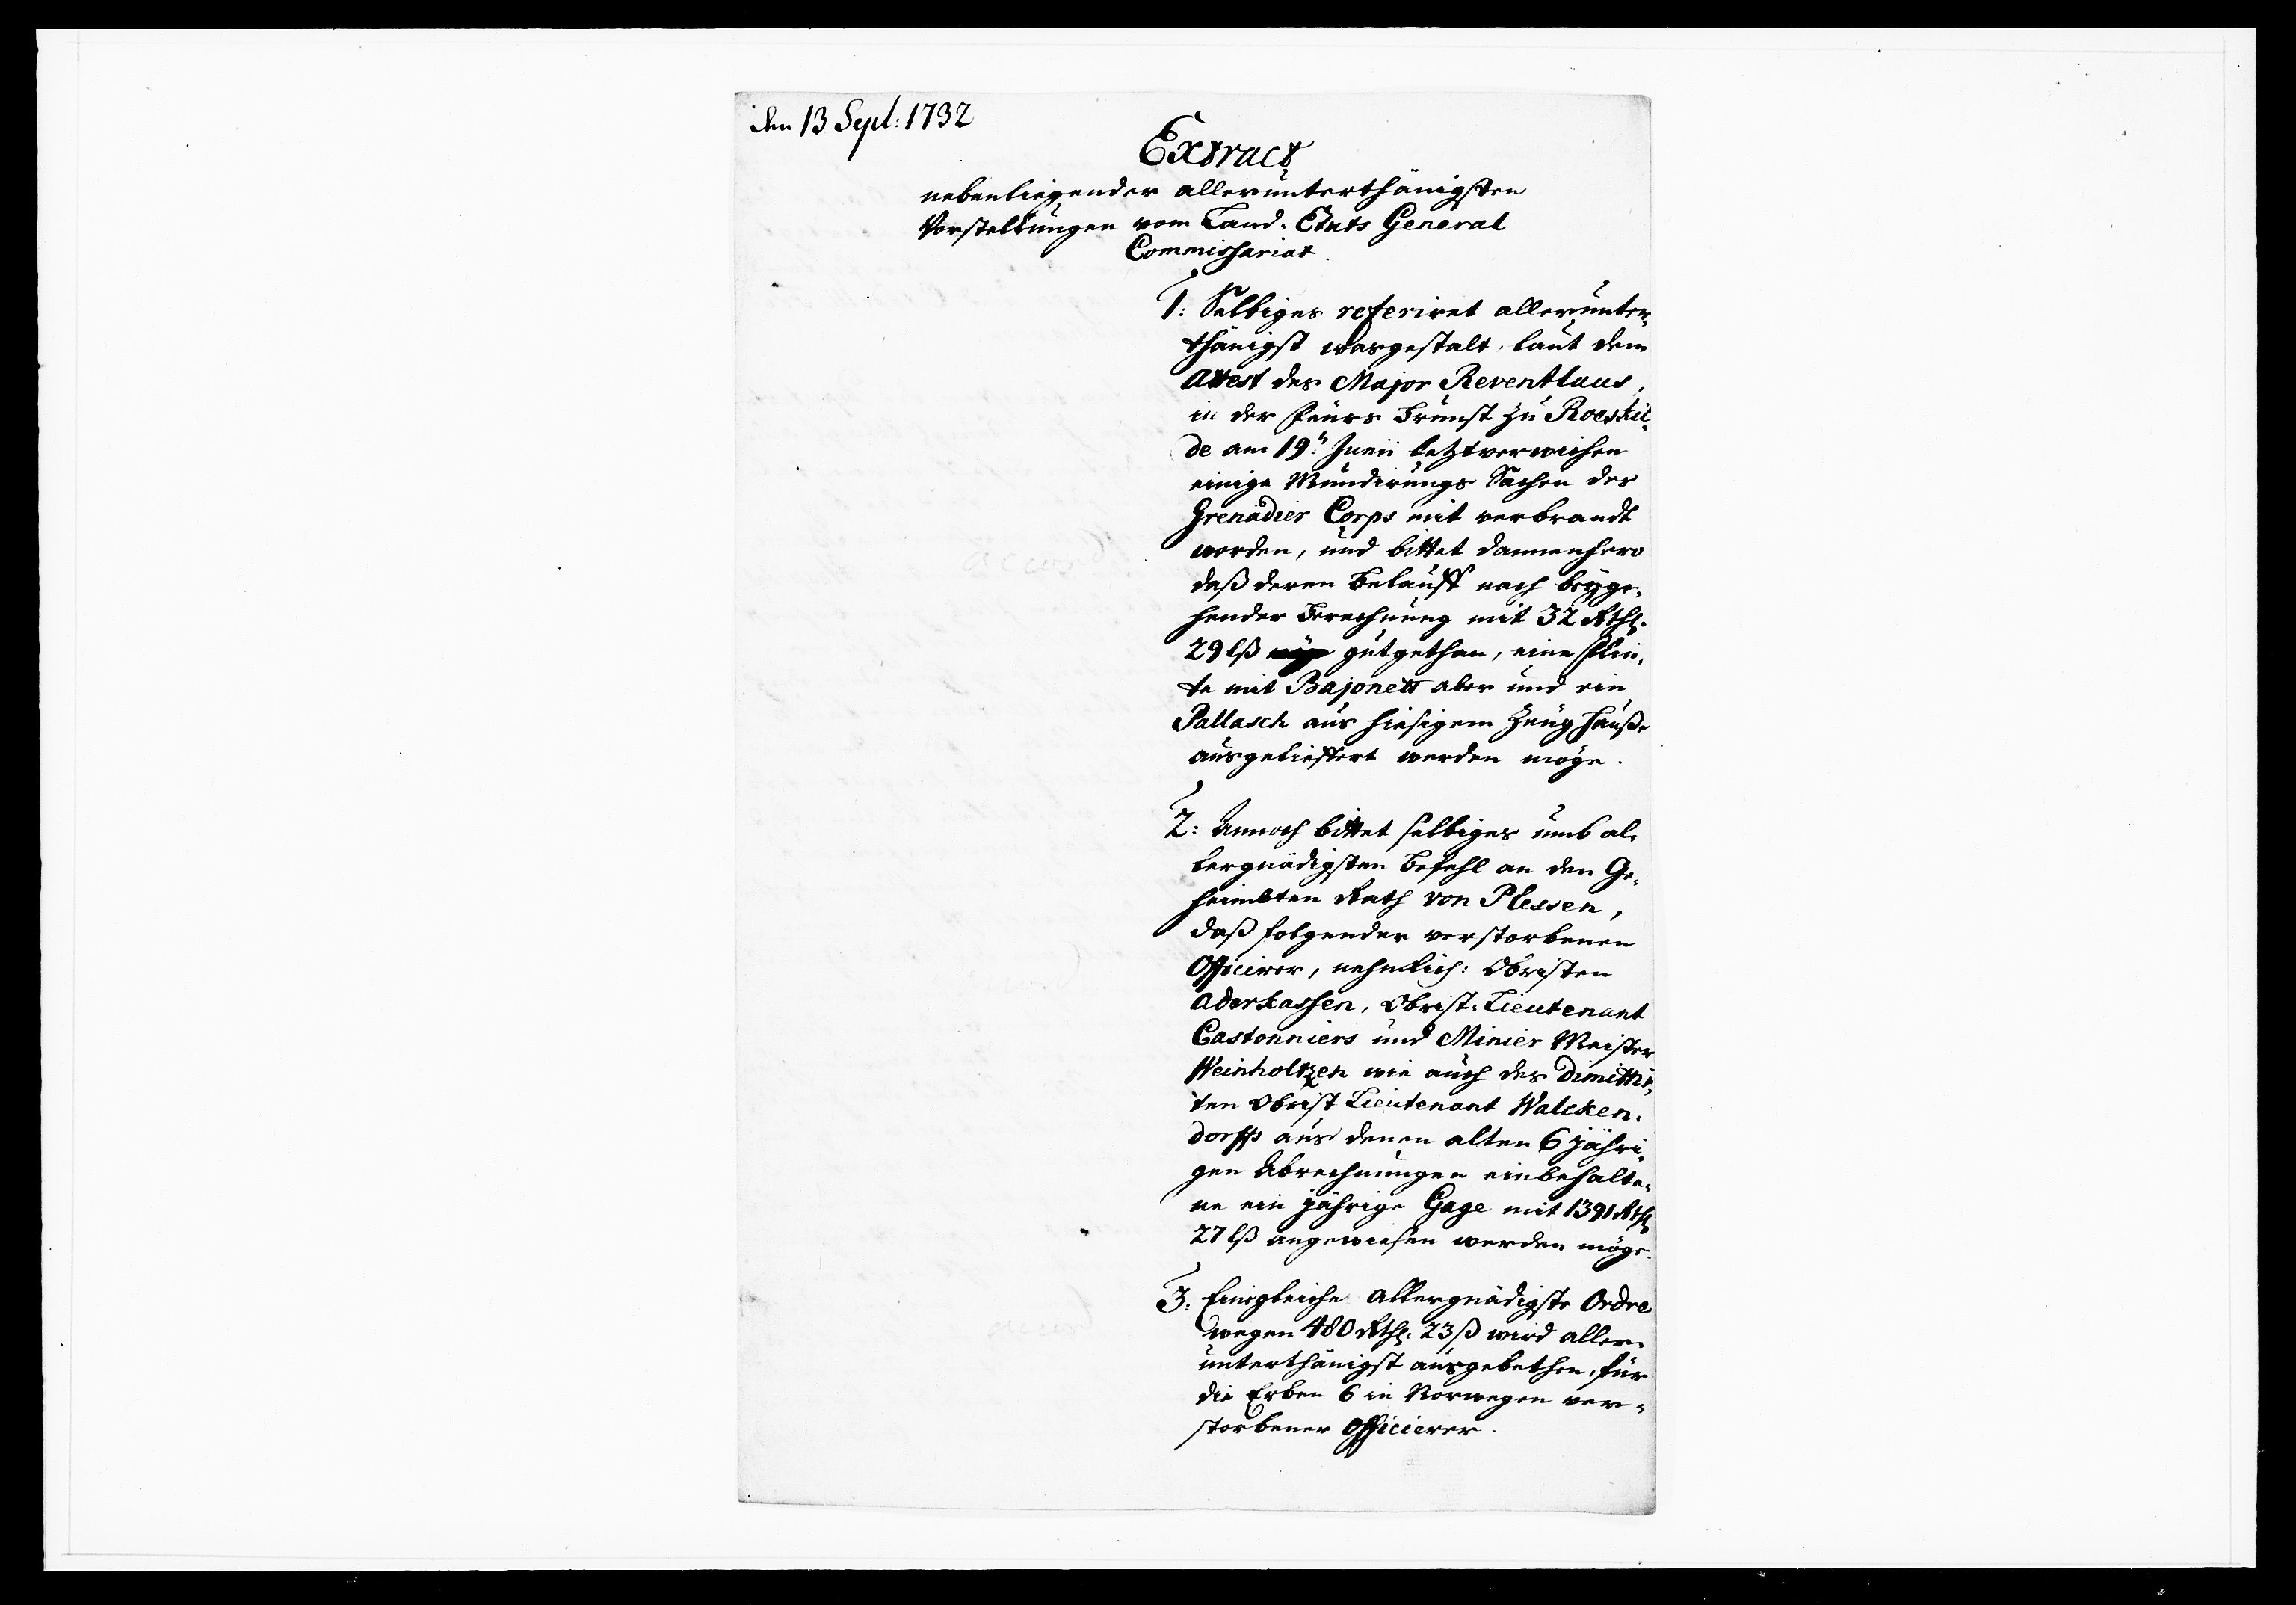 den 13 Sept: 1732
Extract
nebenliegender allerunterthänigsten
Vorstellungen vom Land-Etats General
Commissariat.
1: Selbiges referiret allerunter-
thänigst wasgestalt, laut dem
Attest des Major Reventlaus,
in der Feürs Brunst zu Roeskil-
de am 19t Junii letztverwichen
einige Mundirungs Sachen des
Grenadier Corps mit verbrandt
worden, und bittet dannenhero
daß deren Belauff nach beyge-
hender Berechnung mit 32 Rthl.
29 lß gutgethan, eine Flin-
te mit Bajonett aber und ein
Pallasch aus hiesigem Zeughauße
ausgelieffert werden möge.
2: Annoch bittet selbiges umb al-
lergnädigsten Befehl an den Ge-
heimbten Rath von Plessen,
daß folgender verstorbenen
Officirer, nehmlich: Obristen
Aderkassen, Obrist-Lieutenant
Castonniers und Minier Meister
Weinholtzen wie auch des dimittir-
ten Obrist Lieutenant Walcken-
dorffs aus denen alten 6 jähri-
gen Abrechnungen einbehalte-
ne ein jährige Gage mit 1391 Rthl
27 lß angewiesen werden möge.
3: Eingleiche Allergnädigste Ordre
wegen 480 Rthl. 23 ß wird aller-
unterthänigst ausgebethen, für
die Erben 6 in Norwegen ver-
storbener Officierer.
accord
accord